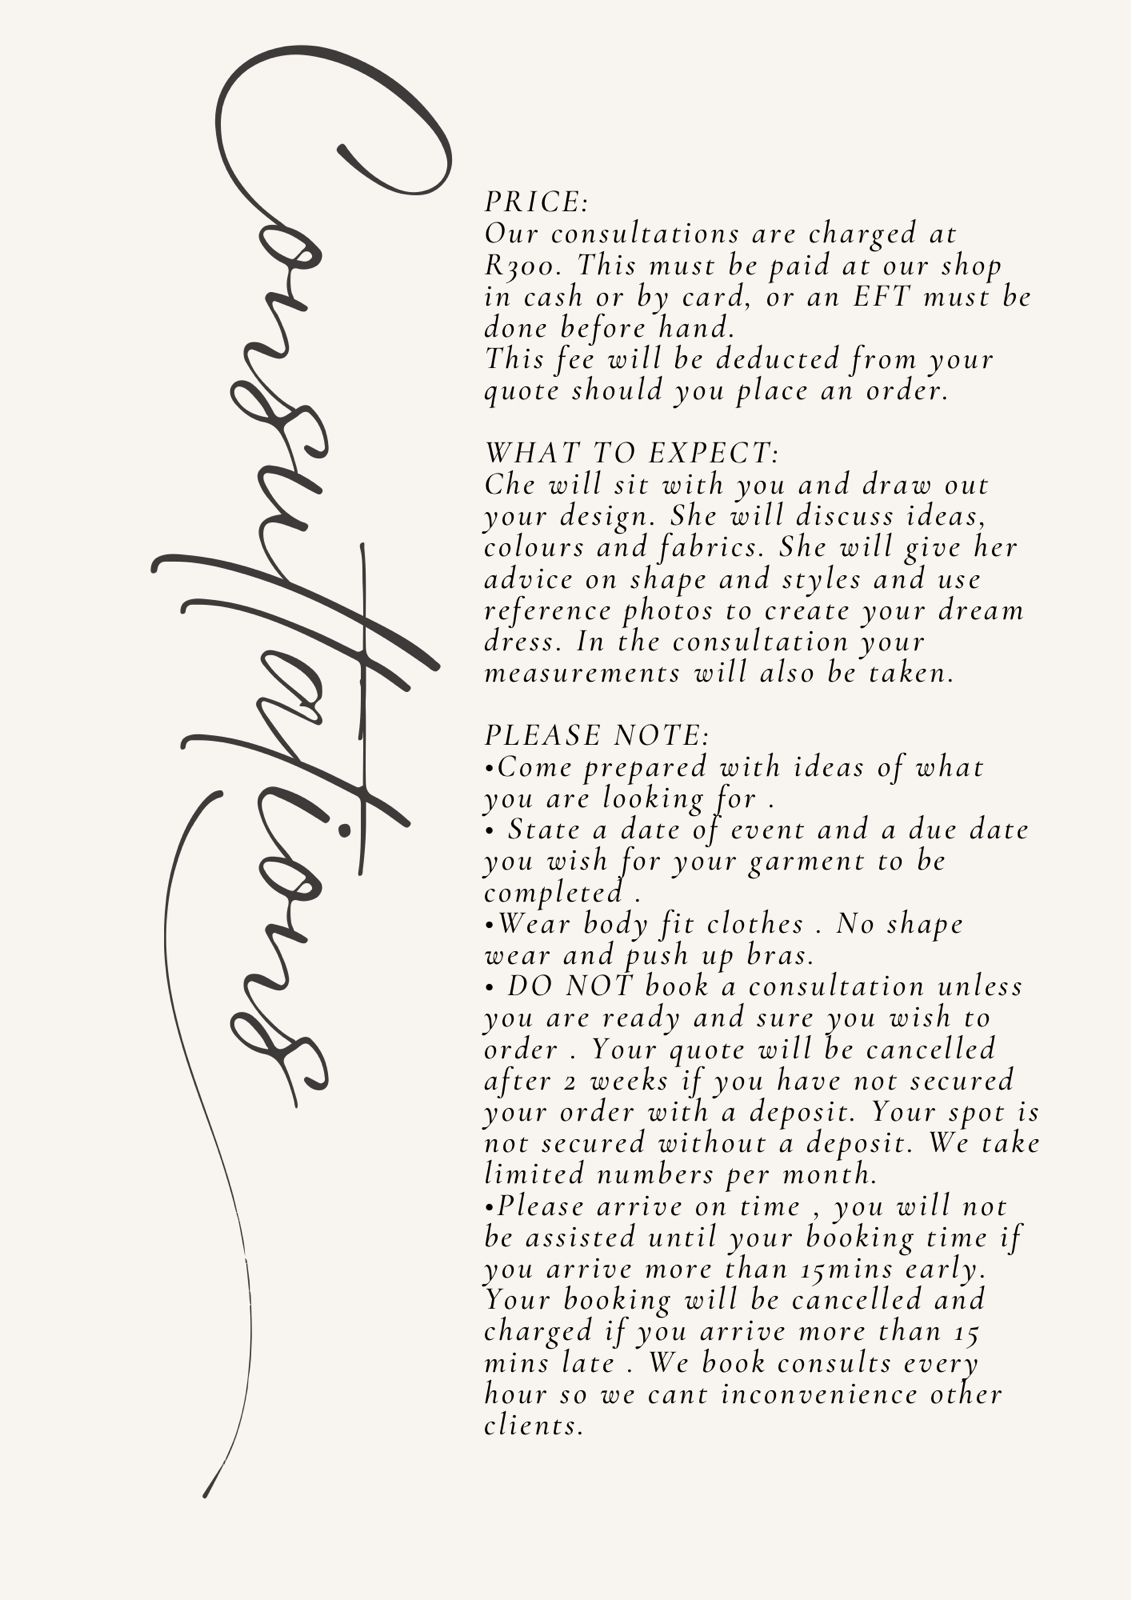 Consultations
PRICE:
Our consultations are charged at
R300. This must be paid at our shop
in cash or by card, or an EFT must be
done before hand.
This fee will be deducted from your
quote should you place an order.
WHAT TO EXPECT:
Che will sit with you and draw out
your design. She will discuss ideas,
colours and fabrics. She will give her
advice on shape and styles and use
reference photos to create your dream
dress. In the consultation your
measurements will also be taken.
PLEASE NOTE:
•Come prepared with ideas of what
you are looking for .
• State a date of event and a due date
you wish for your garment to be
completed .
•Wear body fit clothes . No shape
wear and push up bras.
• DO NOT book a consultation unless
you are ready and sure you wish to
order . Your quote will be cancelled
after 2 weeks if you have not secured
your order with a deposit. Your spot is
not secured without a deposit. We take
limited numbers per month.
•Please arrive on time , you will not
be assisted until your booking time if
you arrive more than 15mins early.
Your booking will be cancelled and
charged if you arrive more than 15
mins late . We book consults every
hour so we cant inconvenience other
clients.